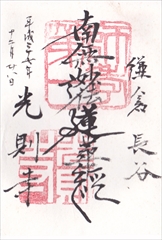 鎌倉 長谷
南無妙法蓮華経
光則寺
平成二七年
十二月廿八日